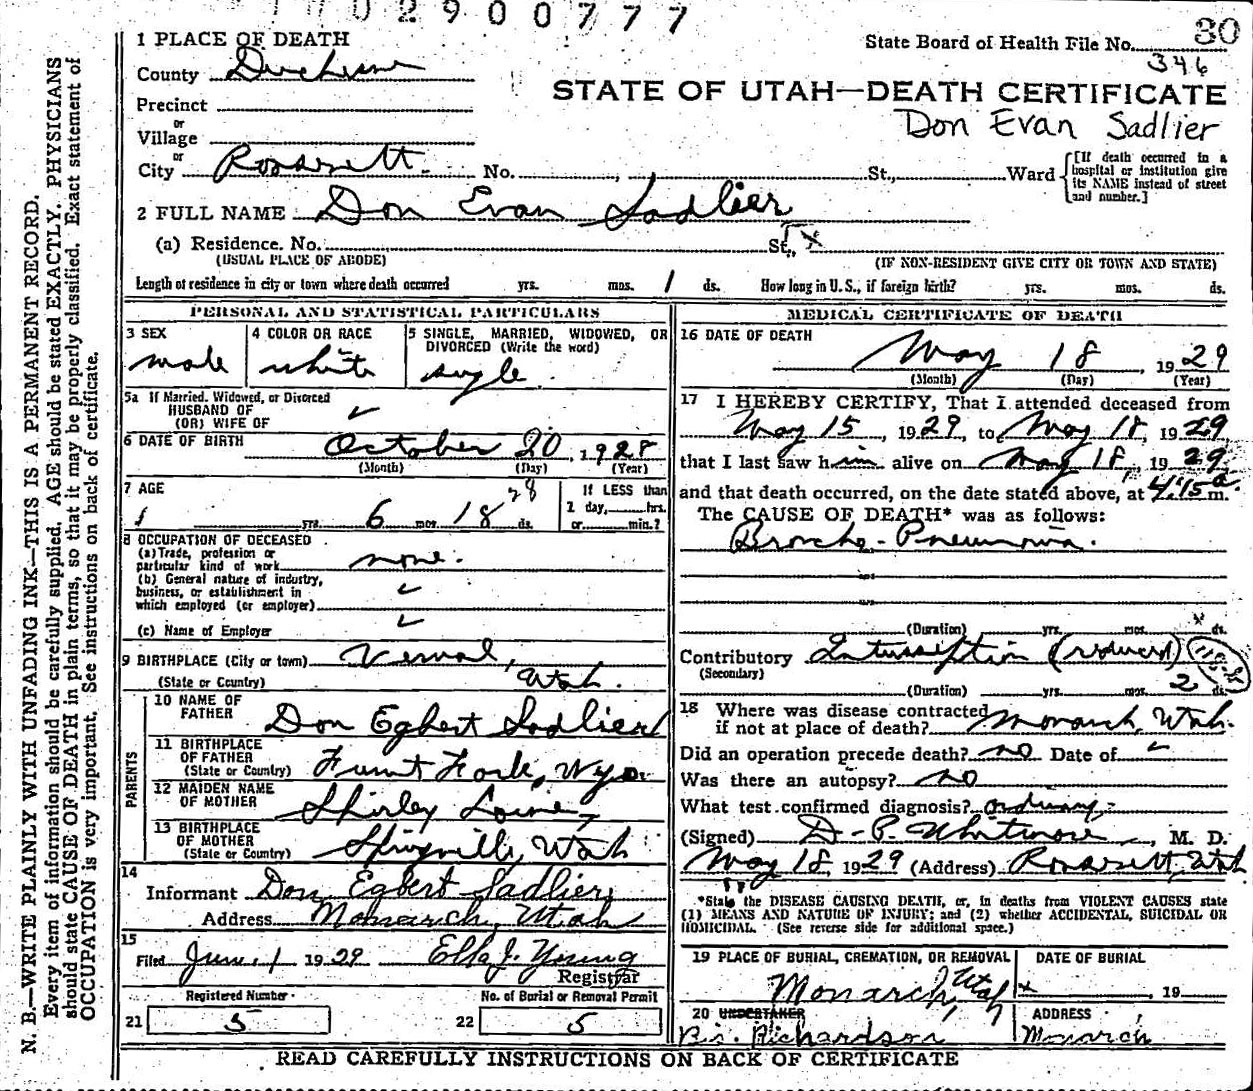 02900777
30
State Board of Health File No.
346
STATE OF UTAH—DEATH CERTIFICATE
Don Evan Sadlier
1 PLACE OF DEATH
County Duchesne
Precinct
or
Village
or
City Roosevelt. No. , St., Ward
[If death occurred in a hospital or institution give its NAME instead of street and number.]
2 FULL NAME Don Evan Sadlier
(a) Residence. No. St.,
(USUAL PLACE OF ABODE) (IF NON-RESIDENT GIVE CITY OR TOWN AND STATE)
Length of residence in city or town where death occurred yrs. mos. 1 ds. How long in U. S., if foreign birth? yrs. mos. ds.
PERSONAL AND STATISTICAL PARTICULARS
3 SEX
male
4 COLOR OR RACE
white
5 SINGLE, MARRIED, WIDOWED, OR DIVORCED (Write the word)
single
5a If Married, Widowed, or Divorced
HUSBAND OF
(OR) WIFE OF
6 DATE OF BIRTH October 20, 1928
(Month) (Day) (Year)
7 AGE
yrs. 6 mos. 18 28 ds.
If LESS than
1 day, hrs.
or min.?
8 OCCUPATION OF DECEASED
(a) Trade, profession or
particular kind of work none.
(b) General nature of industry,
business, or establishment in
which employed (or employer)
(c) Name of Employer
9 BIRTHPLACE (City or town) Vernal,
(State or Country) Utah.
PARENTS
10 NAME OF
FATHER Don Egbert Sadlier
11 BIRTHPLACE
OF FATHER
(State or Country) Burnt Fork, Wyo.
12 MAIDEN NAME
OF MOTHER Shirley
13 BIRTHPLACE
OF MOTHER
(State or Country) Springville, Utah
14
Informant Don Egbert Sadlier
Address Monarch, Utah
15
Filed June 1 1929 Ella J. Young
Registrar
Registered Number
21 5
No. of Burial or Removal Permit
22 5
MEDICAL CERTIFICATE OF DEATH
16 DATE OF DEATH
May 18, 1929
(Month) (Day) (Year)
17 I HEREBY CERTIFY, That I attended deceased from
May 15, 1929, to May 18, 1929
that I last saw him alive on May 18, 1929
and that death occurred, on the date stated above, at 4:15 a. m.
The CAUSE OF DEATH* was as follows:
Broncho-Pneumonia.
(Duration) yrs. mos. ds.
Contributory Intussiption (reduced)
(Secondary)
(Duration) yrs. mos. 2 ds.
18 Where was disease contracted
if not at place of death? Monarch, Utah.
Did an operation precede death? no Date of
Was there an autopsy? no
What test confirmed diagnosis? ordinary
(Signed) D. P. Whitmore, M. D.
May 18, 1929 (Address) Roosevelt, Utah
*State the DISEASE CAUSING DEATH, or, in deaths from VIOLENT CAUSES state
(1) MEANS AND NATURE OF INJURY; and (2) whether ACCIDENTAL, SUICIDAL OR
HOMICIDAL. (See reverse side for additional space.)
19 PLACE OF BURIAL, CREMATION, OR REMOVAL
Monarch, Utah
DATE OF BURIAL
, 19
20 UNDERTAKER
Bis. Richardson
ADDRESS
Monarch
READ CAREFULLY INSTRUCTIONS ON BACK OF CERTIFICATE
N. B.—WRITE PLAINLY WITH UNFADING INK—THIS IS A PERMANENT RECORD.
Every item of information should be carefully supplied. AGE should be stated EXACTLY. PHYSICIANS
should state CAUSE OF DEATH in plain terms, so that it may be properly classified. Exact statement of
OCCUPATION is very important. See instructions on back of certificate.